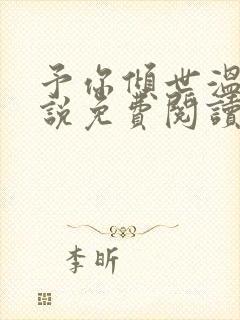 予你傾世溫
說免費閱讀
李昕